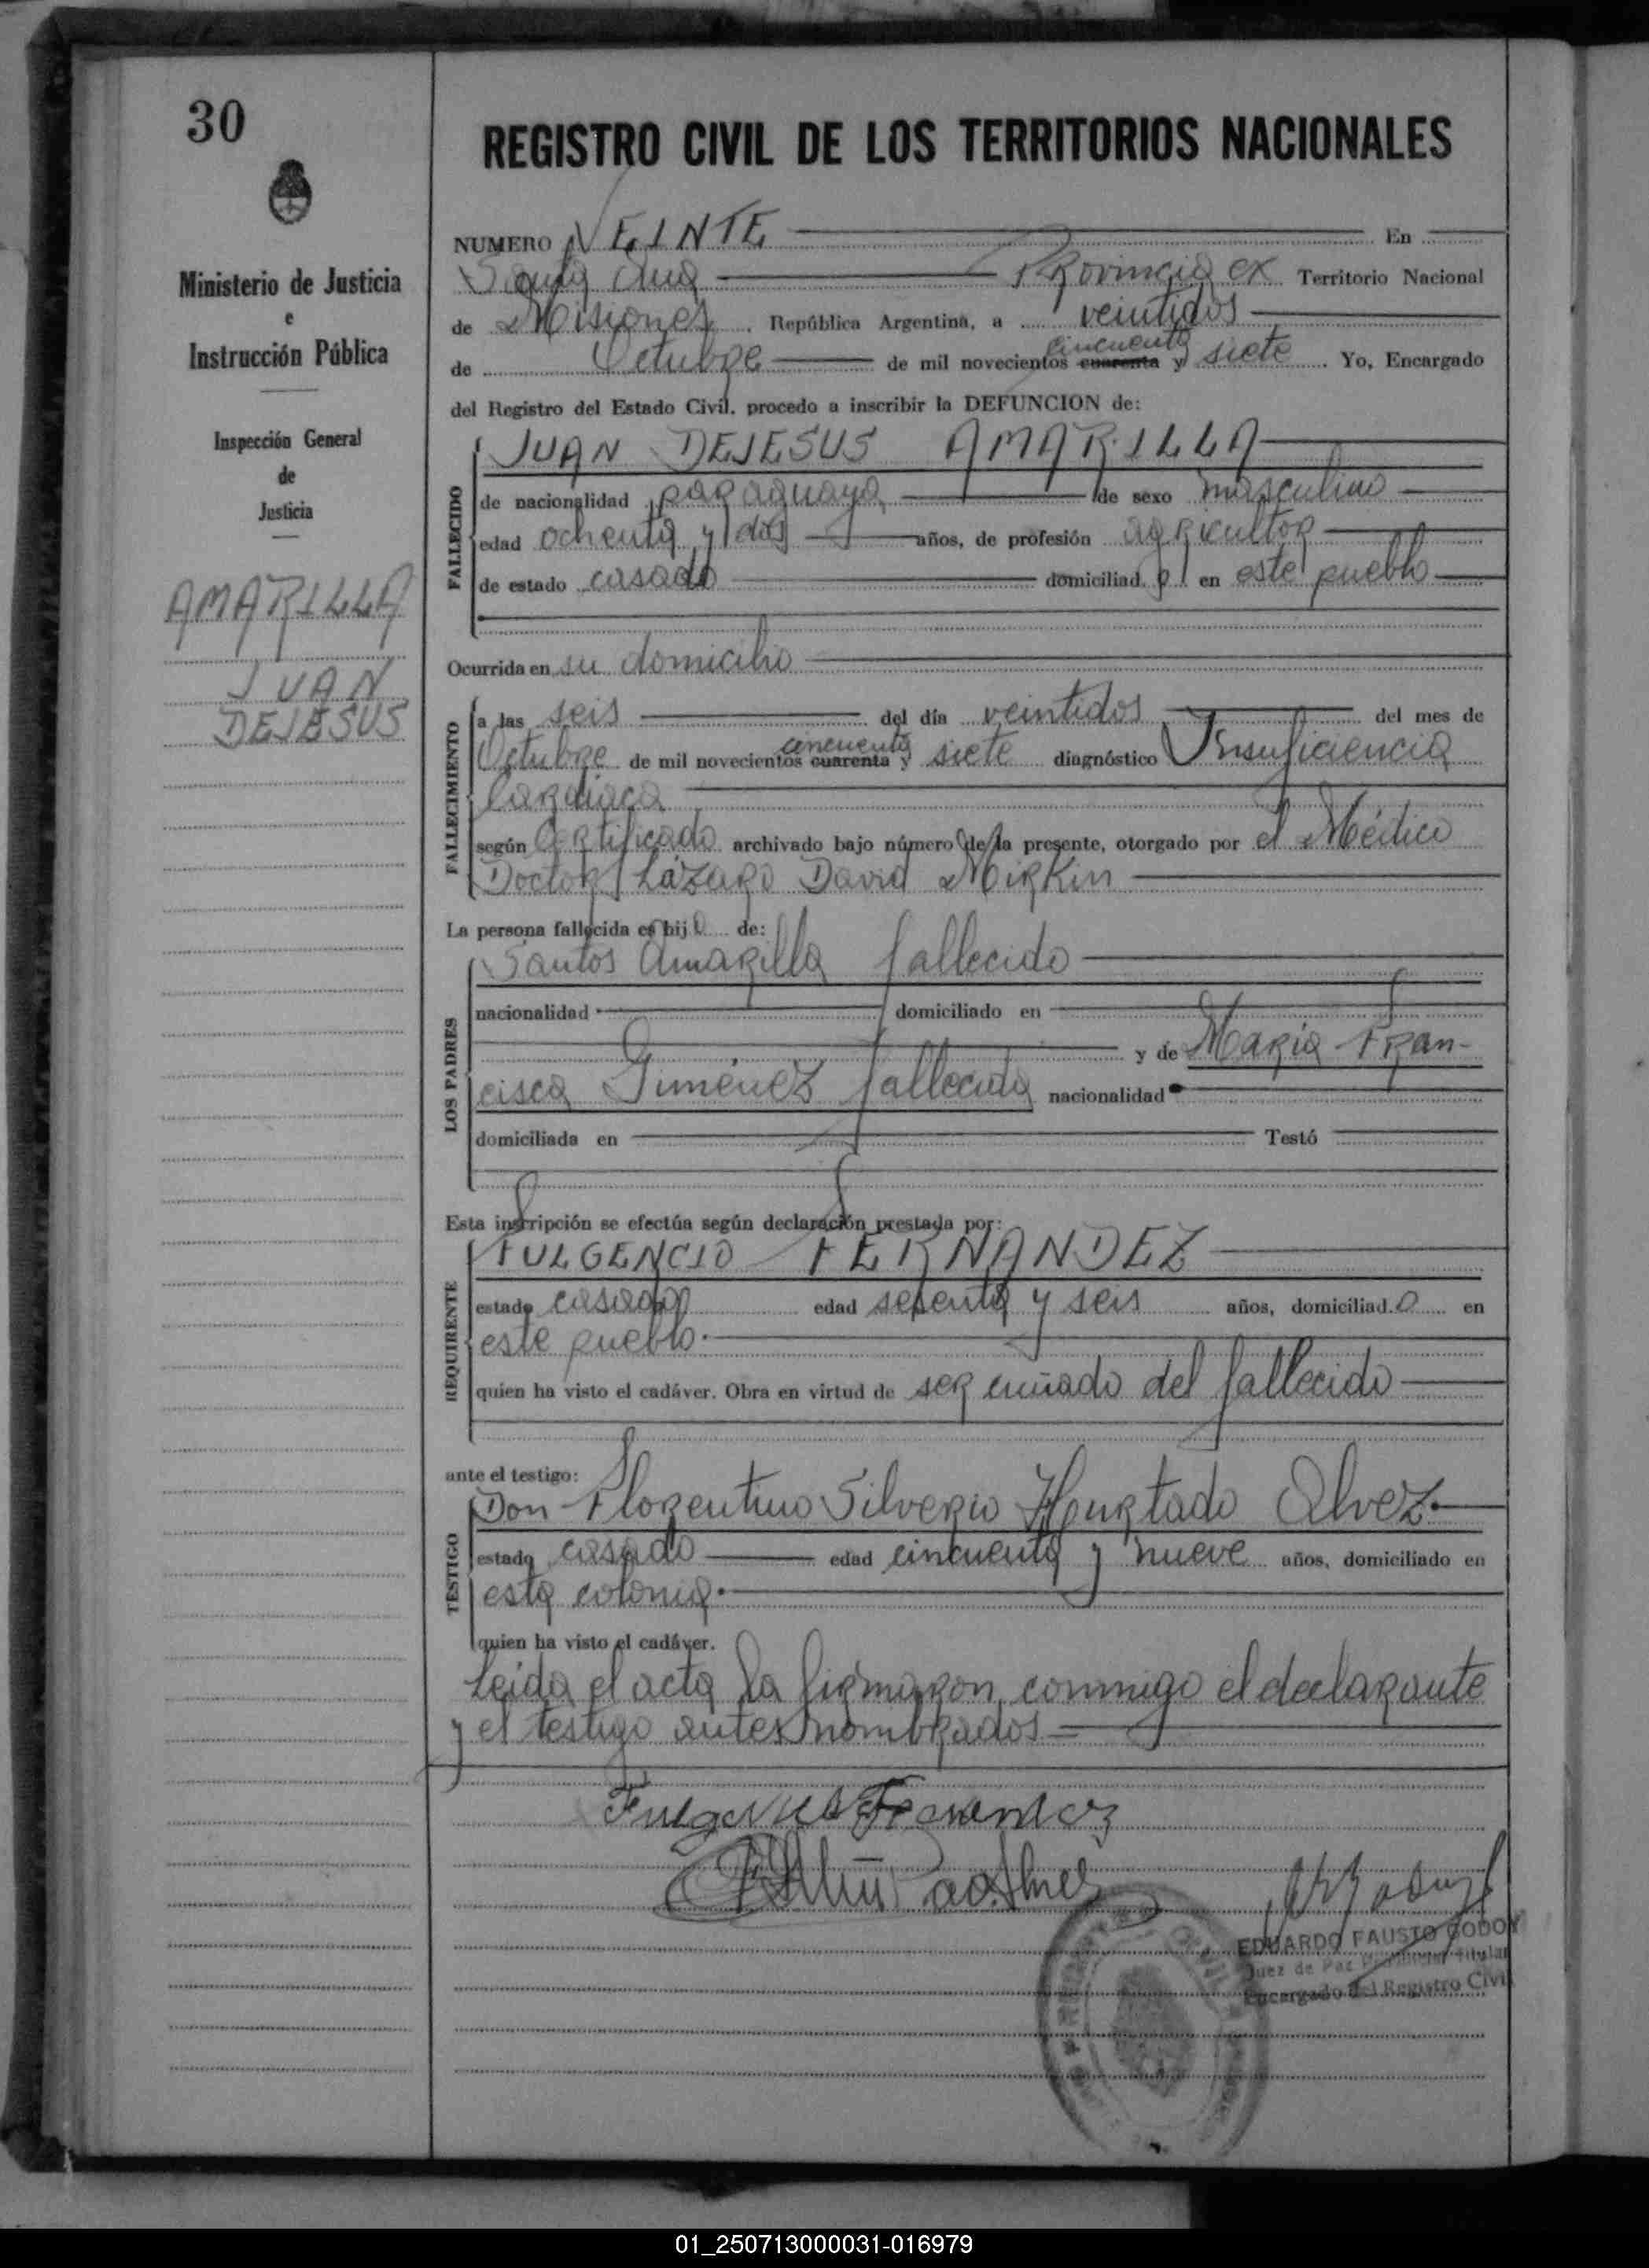 30
REGISTRO CIVIL DE LOS TERRITORIOS NACIONALES
Ministerio de Justicia
e
Instrucción Pública
Inspección General
de
Justicia
AMARILLA
JUAN
DEJESUS
NUMERO VEINTE En
Santa Ana Provincia ex Territorio Nacional
de Misiones. República Argentina, a veintidos
de Octubre de mil novecientos cuarenta cincuenta y siete. Yo, Encargado
del Registro del Estado Civil, procedo a inscribir la DEFUNCION de:
FALLECIDO
JUAN DEJESUS AMARILLA
de nacionalidad paraguaya de sexo masculino
edad ochenta y dos años, de profesión agricultor
de estado casado domiciliad o en este pueblo
Ocurrida en su domicilio
FALLECIMIENTO
a las seis del día veintidos del mes de
Octubre de mil novecientos cuarenta cincuenta y siete diagnóstico Insuficiencia
Cardiaca
según Certificado archivado bajo número de la presente, otorgado por el Médico
Doctor Lázaro David Mirkin
La persona fallecida es hij o de:
LOS PADRES
Santos Amarilla fallecido
nacionalidad domiciliado en
y de María Fran-
cisca Giménez fallecida nacionalidad
domiciliada en Testó
Esta inscripción se efectúa según declaración prestada por:
REQUIRENTE
FULGENCIO FERNANDEZ
estado casado edad setenta y seis años, domiciliad o en
este pueblo.
quien ha visto el cadáver. Obra en virtud de ser cuñado del fallecido
ante el testigo:
TESTIGO
Don Florentino Silverio Hurtado Alvez.
estado casado edad cincuenta y nueve años, domiciliado en
esta colonia.
quien ha visto el cadáver.
Leida el acta la firmaron conmigo el declarante
y el testigo antes nombrados=
Fulgencio Fernandez
EDUARDO FAUSTO GODOY
Juez de Paz Titular
Encargado del Registro Civil
01_250713000031-016979